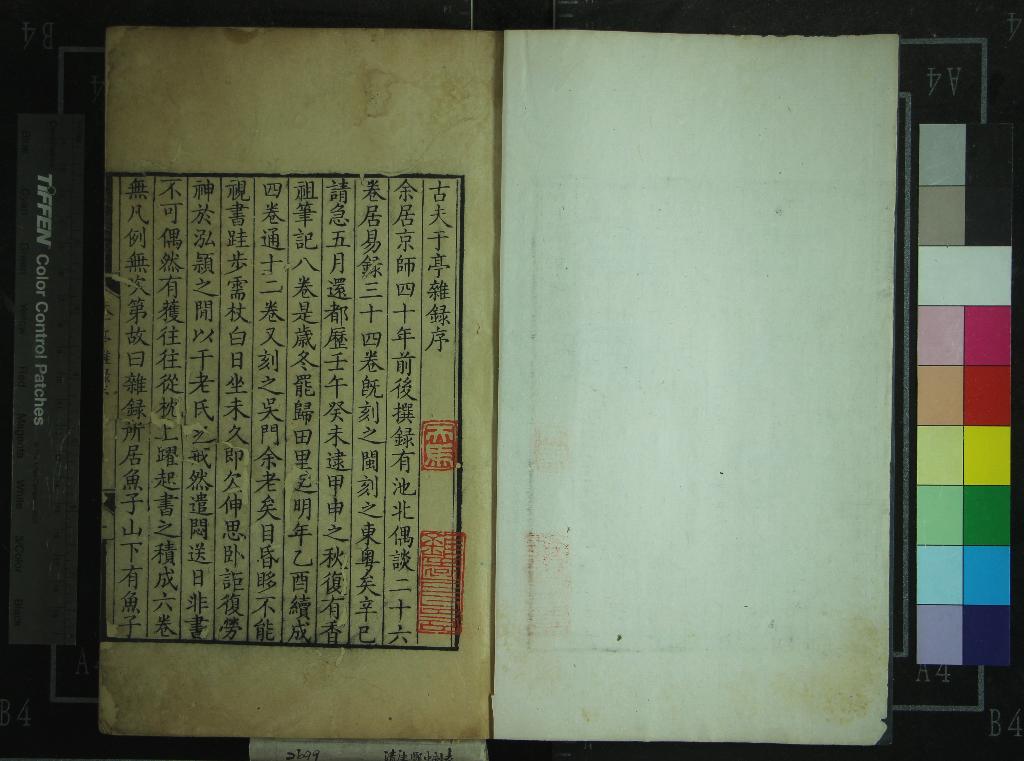 古夫于亭雜録序
余居京師四十年前後撰録有池北偶談二十六
卷居易録三十四卷既刻之閩刻之東粤矣辛巳
請急五月還都歷壬午癸未逮甲申之秋復有香
祖筆記八卷是歲冬罷歸田里迄明年乙酉續成
四卷通十二卷又刻之吳門余老矣目昏眵不能
視書跬步需杖白日坐未久即欠伸思卧詎復勞
神於泓穎之閒以干老氏之戒然遣悶送日非書
不可偶然有獲往往從枕上躍起書之積成六卷
無凡例無次第故曰雜録所居魚子山下有魚子
TIFFEN Color Control Patches
B4
A4
A4
A4
B4
B4